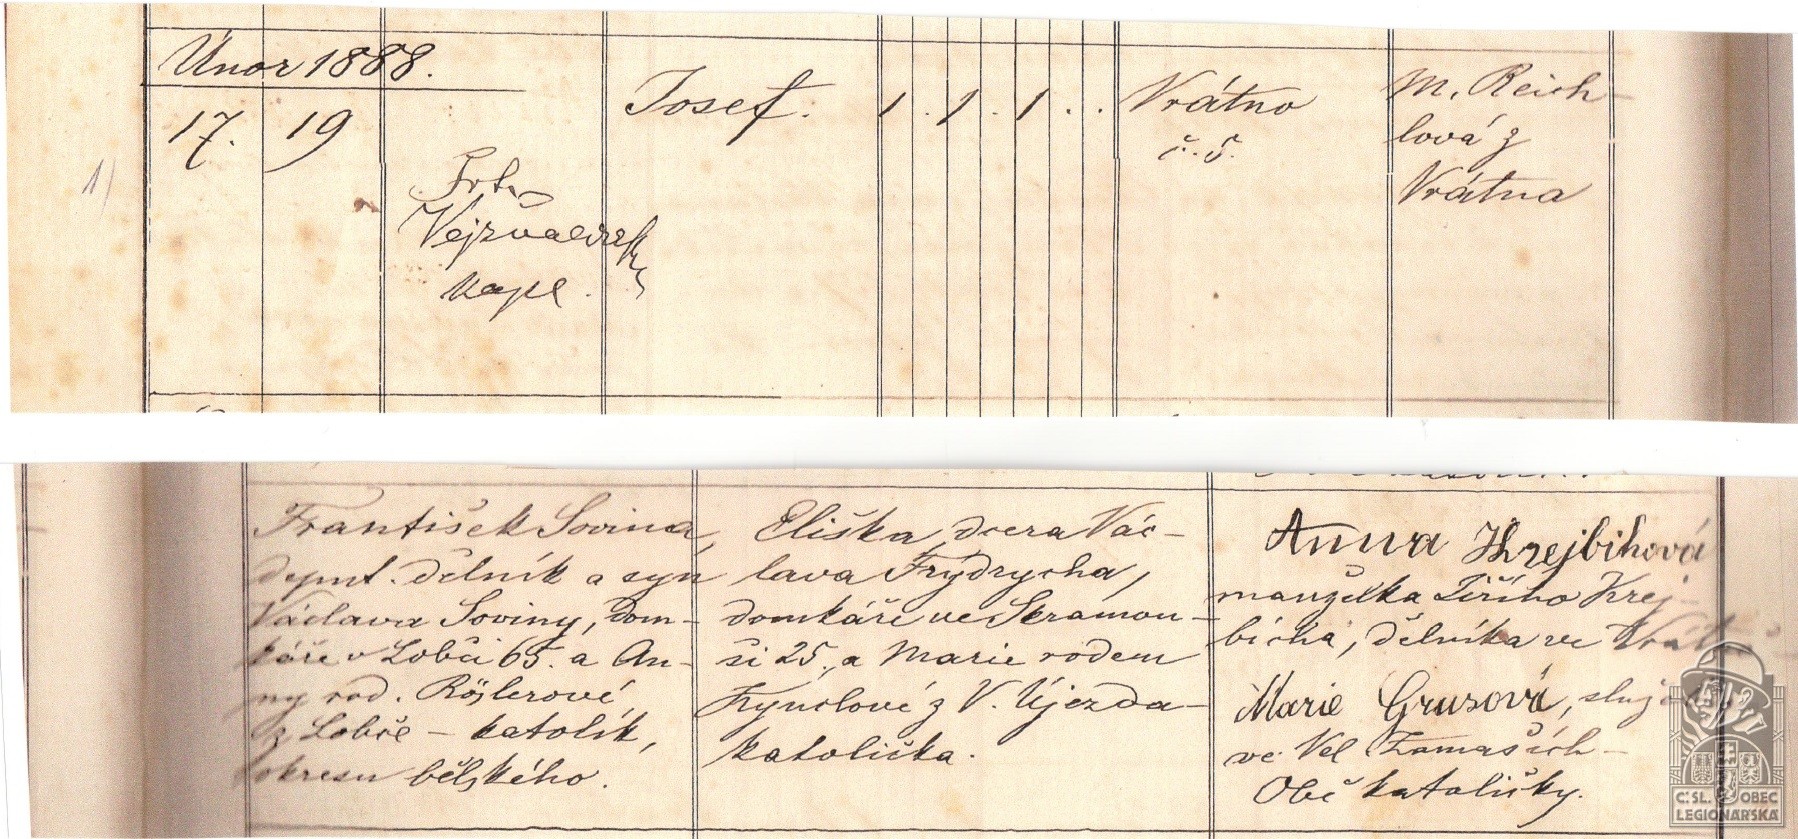 Únor 1888.
1)
17. 19
Josef.
1. 1. 1. . .
Vrátno
č. 5.
M. Reich-
lová z
Vrátna
kapl.
František Sovina,
dymt. dělník a syn
Václava Soviny, dom-
káře v Lobči 65. a An-
ny rod. Röslerové,
z Lobče - katolík,
okresu bělského.
Eliška, dcera Vác-
lava Frýdrycha,
domkáře ve Skramou-
ši 25., a Marie rodem
Kynclové z V. Újezda -
katolička.
Anna Krejbichová
manželka Jiřího Krej-
bicha, dělníka ve
Marie Grusová,
ve Vel
Obě katoličky.
Č: SL. OBEC
LEGIONÁŘSKÁ